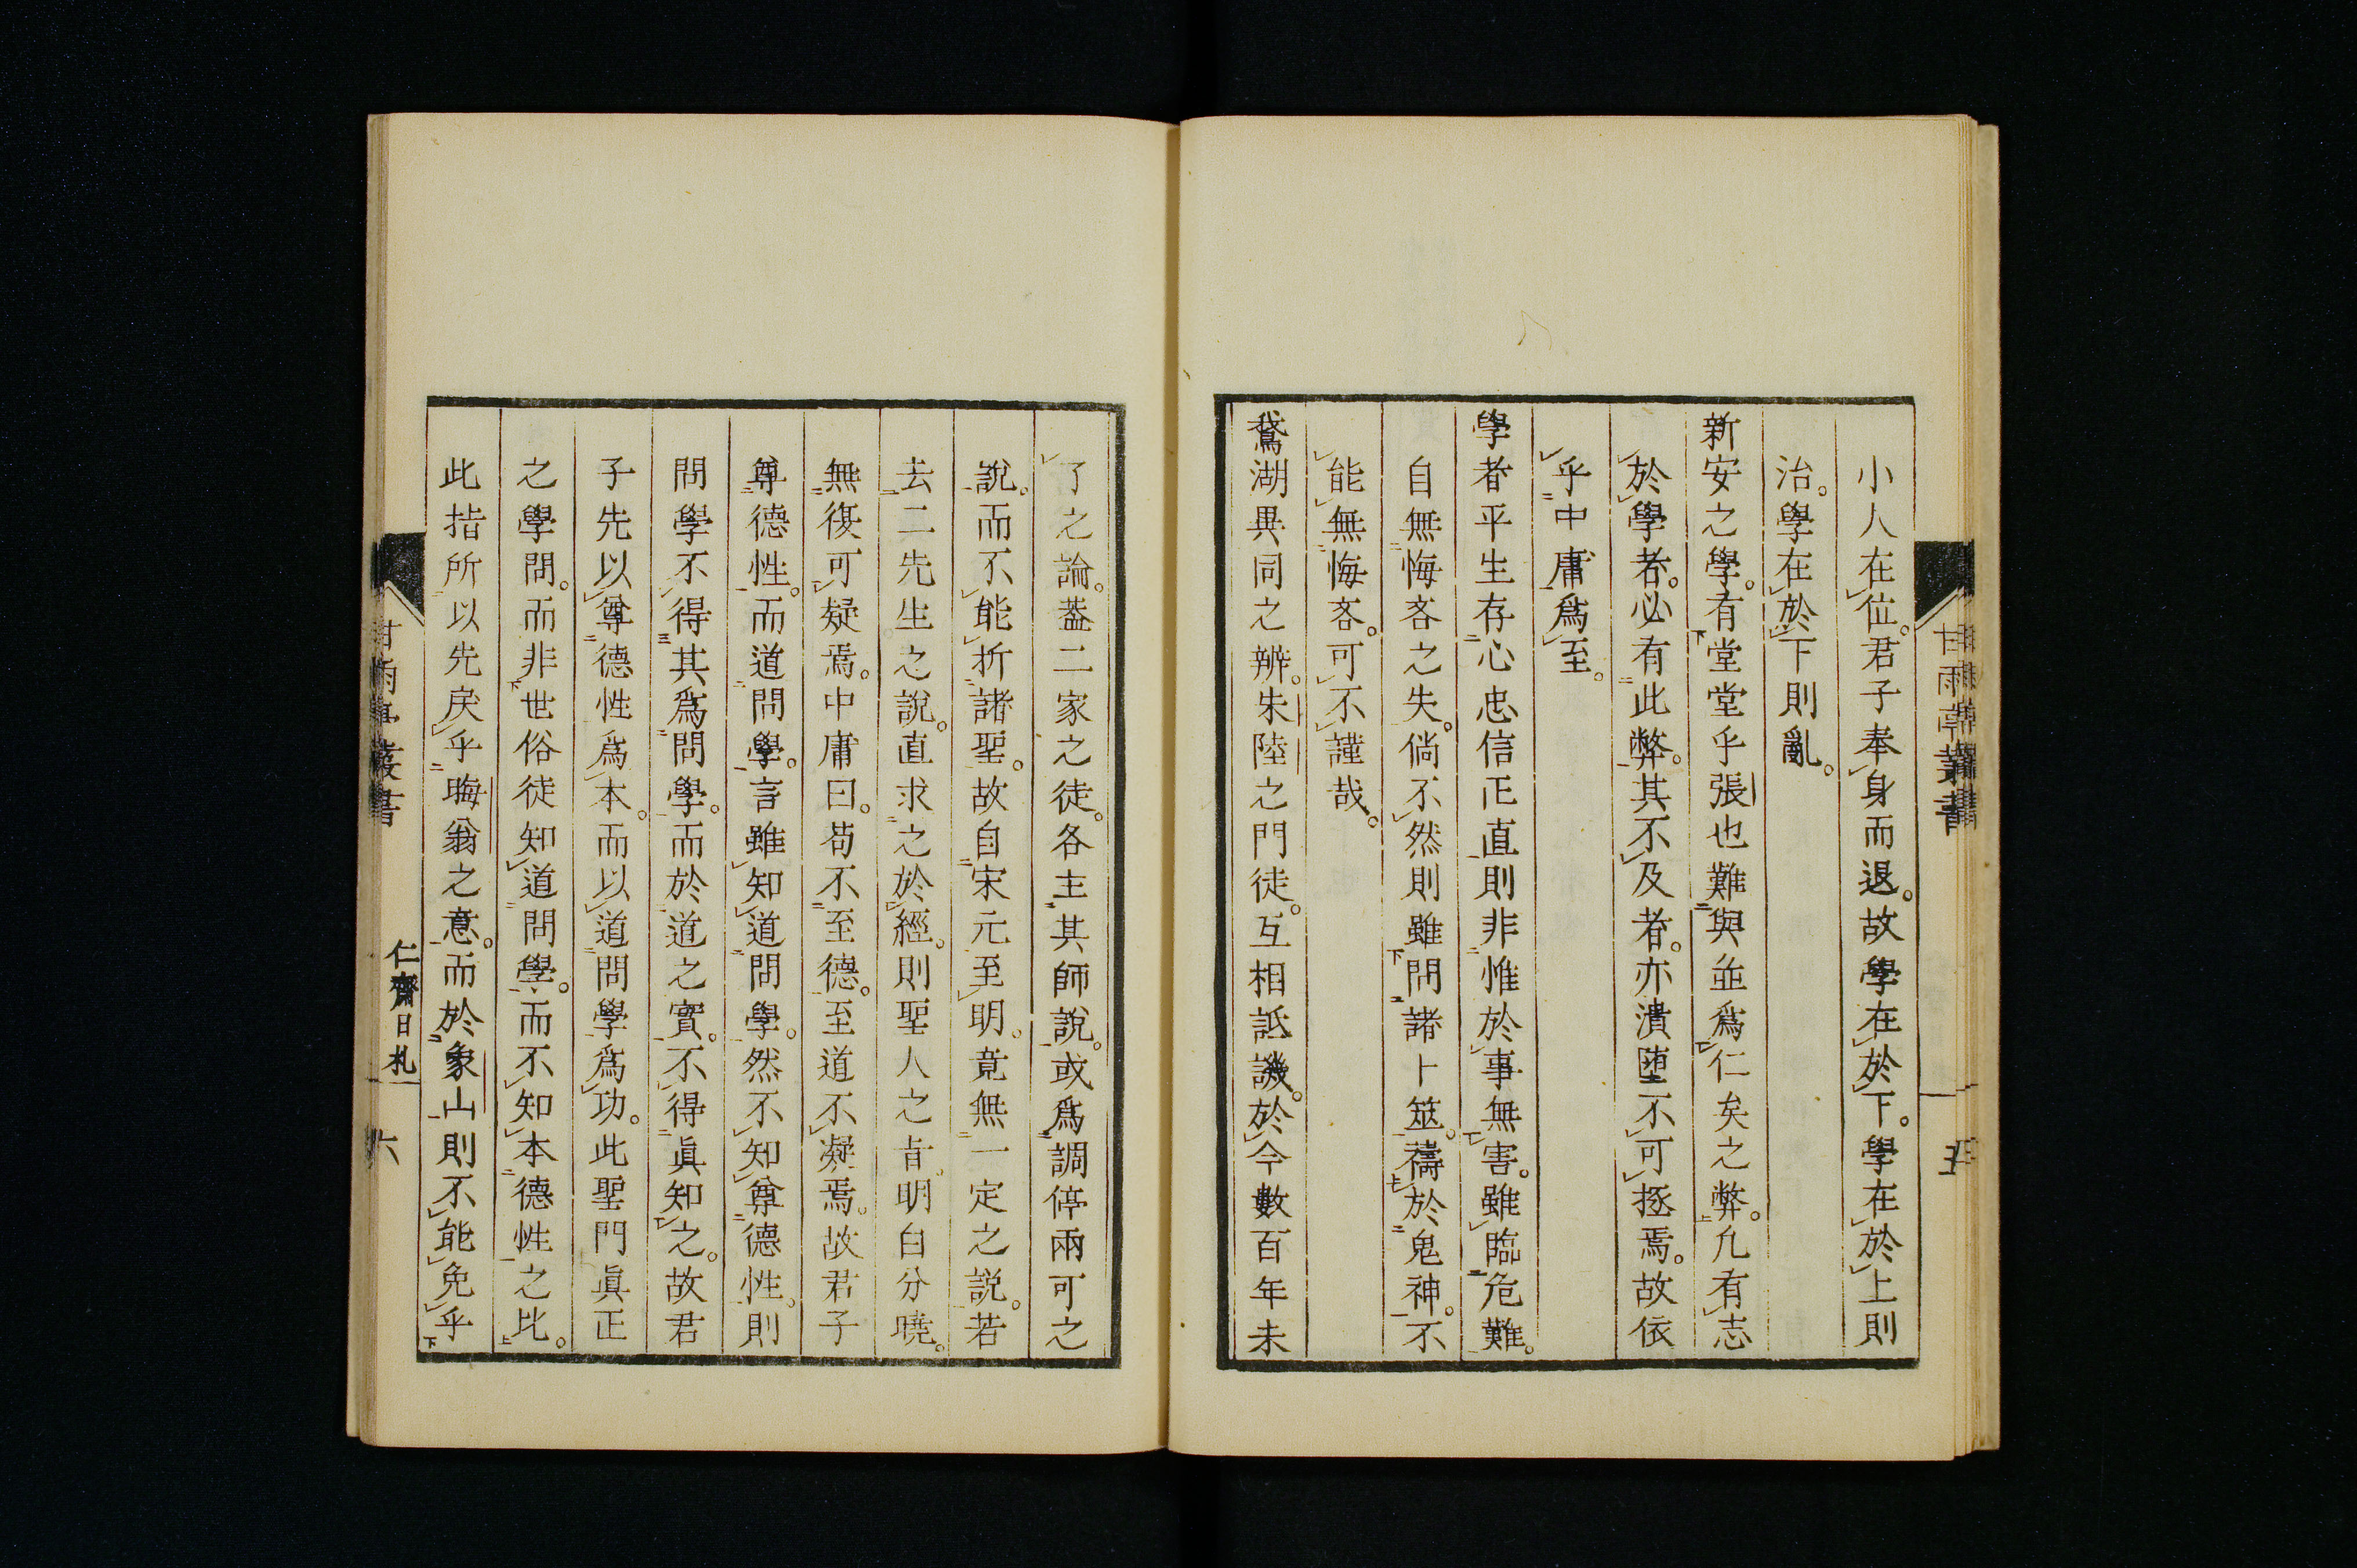 小人在位。君子奉身而退。故學在於下。學在於上則
治。學在於下則亂。
新安之學。有堂堂乎張也難與並爲仁矣之弊。凢有志
於學者。必有此弊。其不及者。亦潰堕不可拯焉。故依
乎中庸爲至。
學者平生存心忠信正直則非惟於事無害。雖臨危難。
自無悔吝之失。倘不然則雖問諸卜筮。禱於鬼神。不
能無悔吝。可不謹哉。
鵞湖異同之辨。朱陸之門徒。互相詆譏。於今數百年未
了之論。葢二家之徒。各主其師說。或爲調停兩可之
説。而不能折諸聖。故自宋元至明。竟無一定之説。若
去二先生之說。直求之於經。則聖人之旨。明白分曉。
無復可疑焉。中庸曰。苟不至德。至道不凝焉。故君子
尊德性。而道問學。言雖知道問學。然不知尊德性。則
問學不得其爲問學。而於道之實。不得眞知之。故君
子先以尊德性爲本。而以道問學爲功。此聖門眞正
之學問。而非世俗徒知道問學。而不知本德性之比。
此指所以先戾乎晦翁之意。而於象山則不能免乎
甘雨亭叢書
五
仁齋日札
六